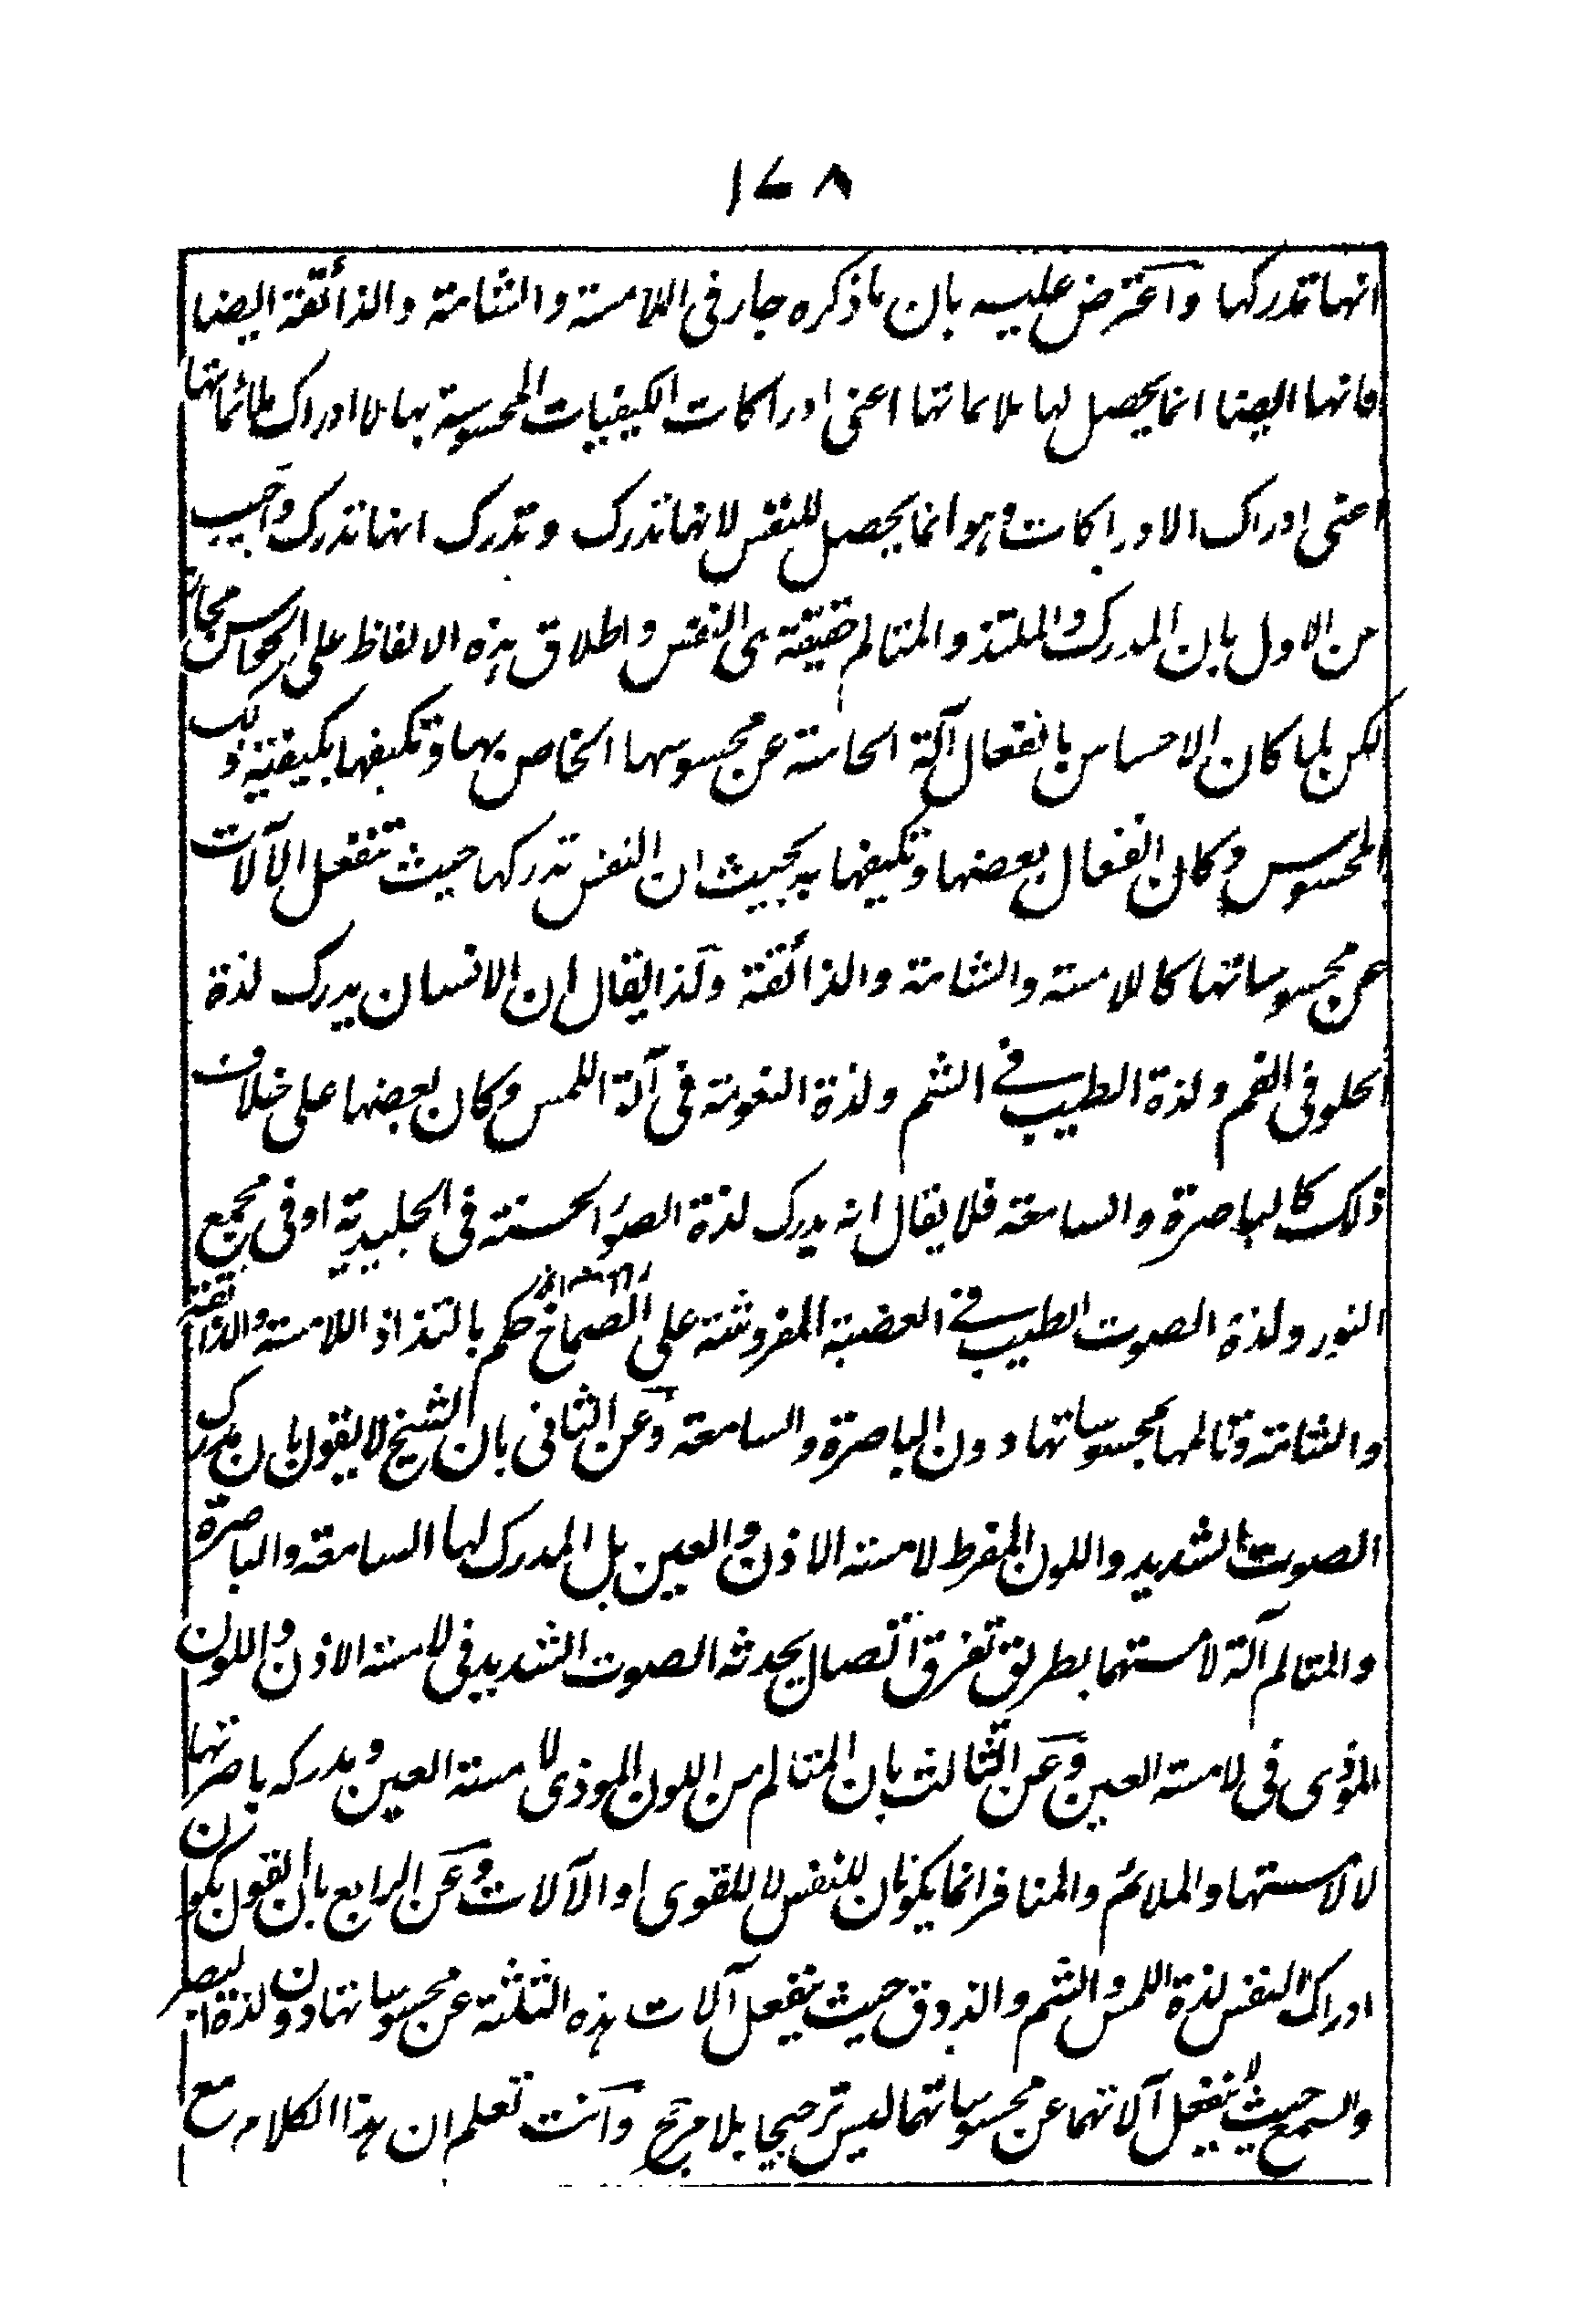 ١٧٨
انها تدركها واعترض عليه بان ما ذكره جار فى اللامسة والشامة والذائقة ايضا
فانها ايضا انما يحصل لها ملائماتها اعنى ادراكات الكيفيات المحسوسة بها لا ادراك ملائماتها
اعنى ادراك الادراكات وهو انما يحصل للنفس لانها تدرك وتدرك انها تدرك واجيب
عن الاول بان المدرك والملتذ والمتالم حقيقة هى النفس واطلاق هذه الالفاظ على الحواس مجاز
لكن لما كان الاحساس بانفعال آلة الحاسة عن محسوسها الخاص بها وتكيفها بكيفية ذلك
المحسوس وكان انفعال بعضها وتكيفها به بحيث ان النفس تدركها حيث تنفعل الآلات
عن محسوساتها كاللامسة والشامة والذائقة ولذا يقال ان الانسان يدرك لذة
الحلو فى الفم ولذة الطيب فى الشم ولذة النعومة فى آلة اللمس وكان بعضها على خلاف
ذلك كالباصرة والسامعة فلا يقال انه يدرك لذة الصور الحسنة فى الجليدية او فى مجمع
النور ولذة الصوت الطيب فى العصبة المفروشة على الصماخ حكم بالتذاذ اللامسة والذائقة
والشامة وتالمها بمحسوساتها دون الباصرة والسامعة وعن الثانى بان الشيخ لا يقول بان مدرك
الصوت الشديد واللون المفرط لامسة الاذن والعين بل المدرك لها السامعة والباصرة
والمتالم آلة لامستهما بطريق تفرق اتصال يحدثه الصوت الشديد فى لامسة الاذن واللون
الموذى فى لامسة العين وعن الثالث بان المتالم من اللون الموذى لامسة العين ومدركه باصرتها
لا لامستها والملائم والمنافر انما يكونان للنفس لا للقوى او الآلات وعن الرابع بان القول بكون
ادراك النفس لذة اللمس والشم والذوق حيث ينفعل آلات هذه الثلثة عن محسوساتها دون لذة البصر
والسمع حيث لا ينفعل آلاتهما عن محسوساتهما ليس ترجيحا بلا مرجح وانت تعلم ان هذا الكلام مع